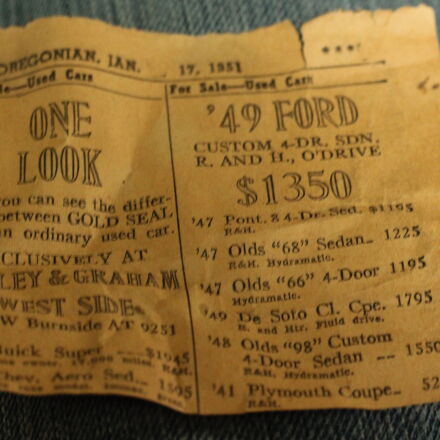 OREGONIAN, JAN. 17, 1951
Used Cars
ONE
LOOK
you can see the differ-
between GOLD SEAL
an ordinary used car.
CLUSIVELY AT
LEY & GRAHAM
WEST SIDE
W Burnside AT 9251
Buick Super $1945
Chev. Aero Sed. 1595
For Sale—Used Cars
'49 FORD
CUSTOM 4-DR. SDN.
R. AND H., O'DRIVE
$1350
'47 Pont. 8 4-Dr. Sed. $1195
R&H.
'47 Olds "68" Sedan 1225
R&H. Hydramatic.
'47 Olds "66" 4-Door 1195
Hydramatic.
'49 De Soto Cl. Cpe. 1795
R. and Htr. Fluid drive.
'48 Olds "98" Custom
4-Door Sedan 1550
R&H. Hydramatic.
'41 Plymouth Coupe 52
R&H.